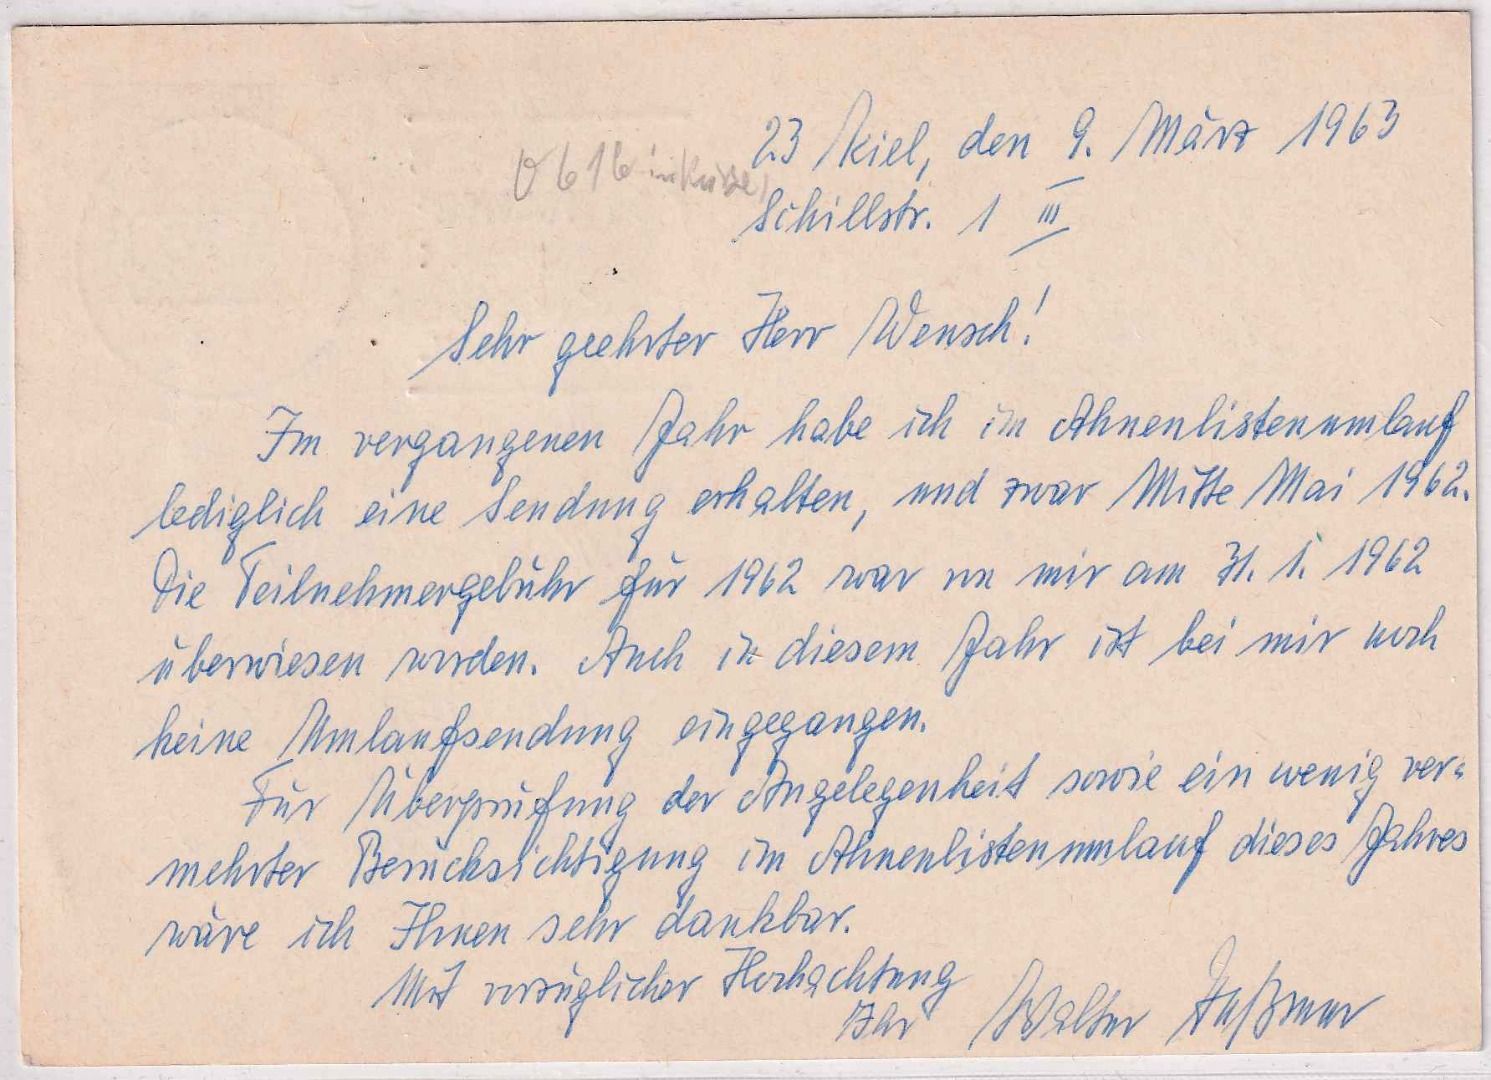 23 Kiel, den 9. März 1963
Schillstr. 1 III
Sehr geehrter Herr Wensch!
Im vergangenen Jahr habe ich im Ahnenlistenumlauf
lediglich eine Sendung erhalten, und zwar Mitte Mai 1962.
Die Teilnehmergebühr für 1962 war von mir am 31. 1. 1962
überwiesen worden. Auch in diesem Jahr ist bei mir noch
keine Umlaufsendung eingegangen.
Für Überprüfung der Angelegenheit sowie ein wenig ver-
mehrter Berücksichtigung im Ahnenlistenumlauf dieses Jahres
wäre ich Ihnen sehr dankbar.
Mit vorzüglicher Hochachtung
Ihr Walter